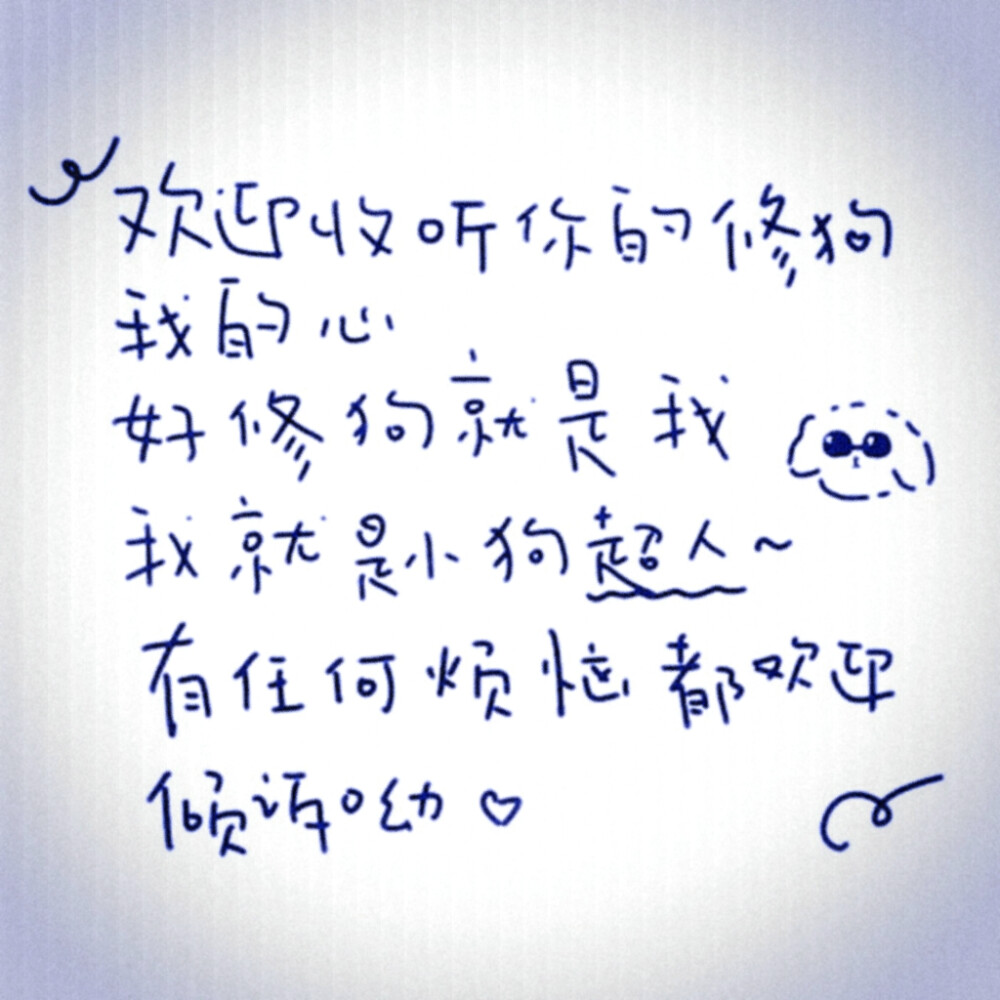 欢迎收听你的修狗
我的心
好修狗就是我
我就是小狗超人~
有任何烦恼都欢迎
倾诉呦♡